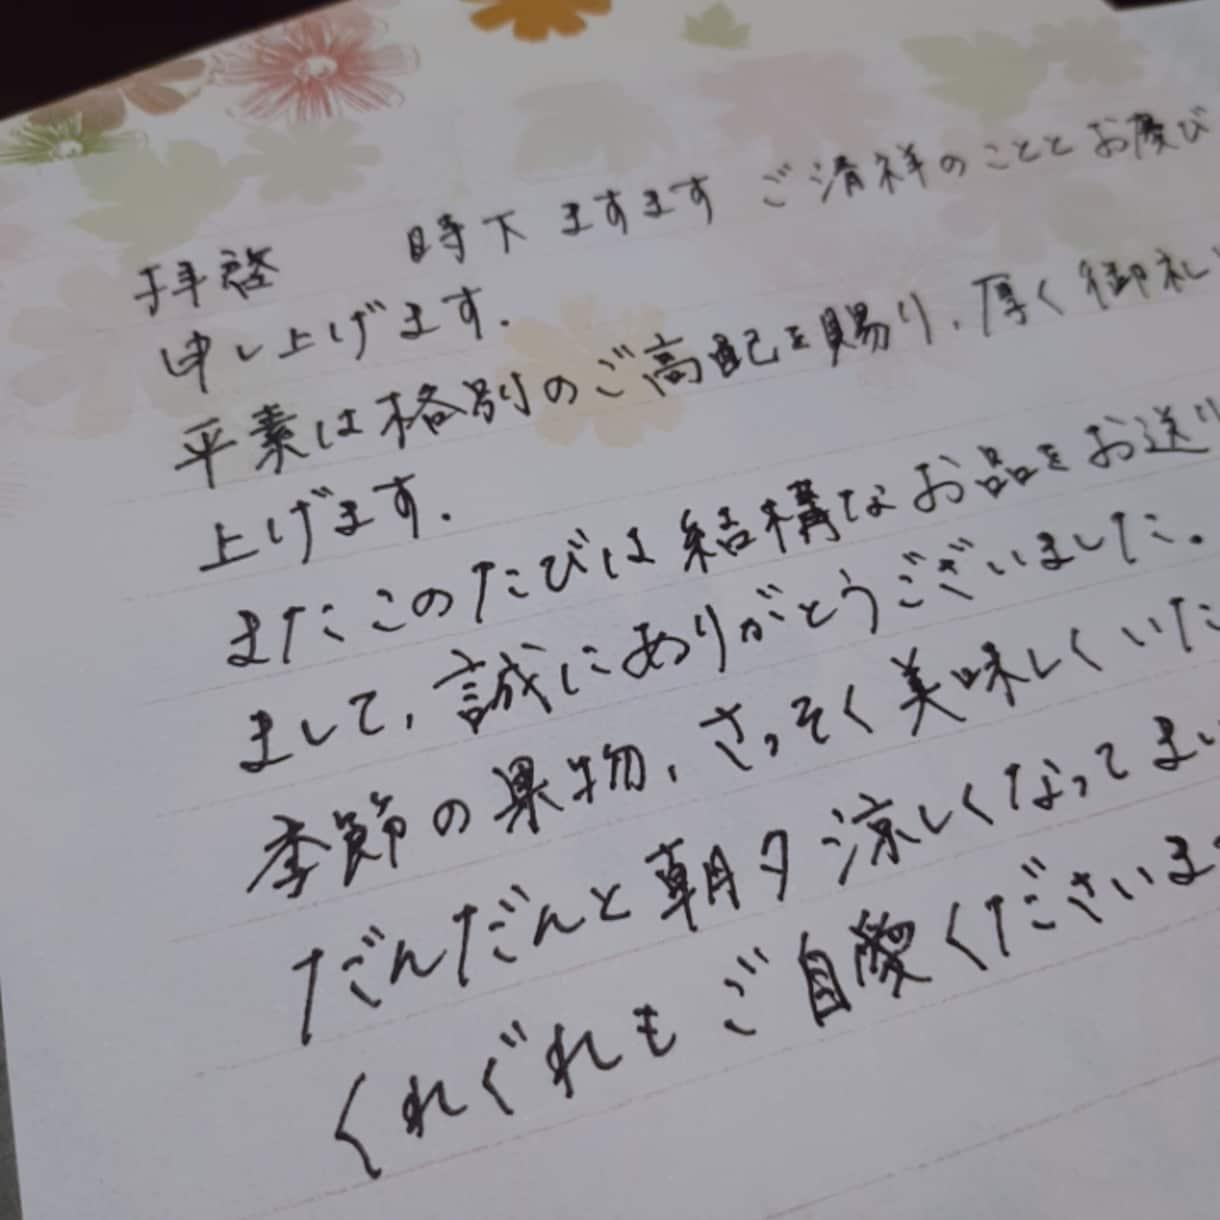 拝啓　時下ますますご清祥のこととお慶び
申し上げます.
平素は格別のご高配を賜り、厚く御礼
上げます.
またこのたびは結構なお品をお送り
まして、誠にありがとうございました。
季節の果物、さっそく美味しくいた
だんだんと朝夕涼しくなってまい
くれぐれもご自愛くださいま